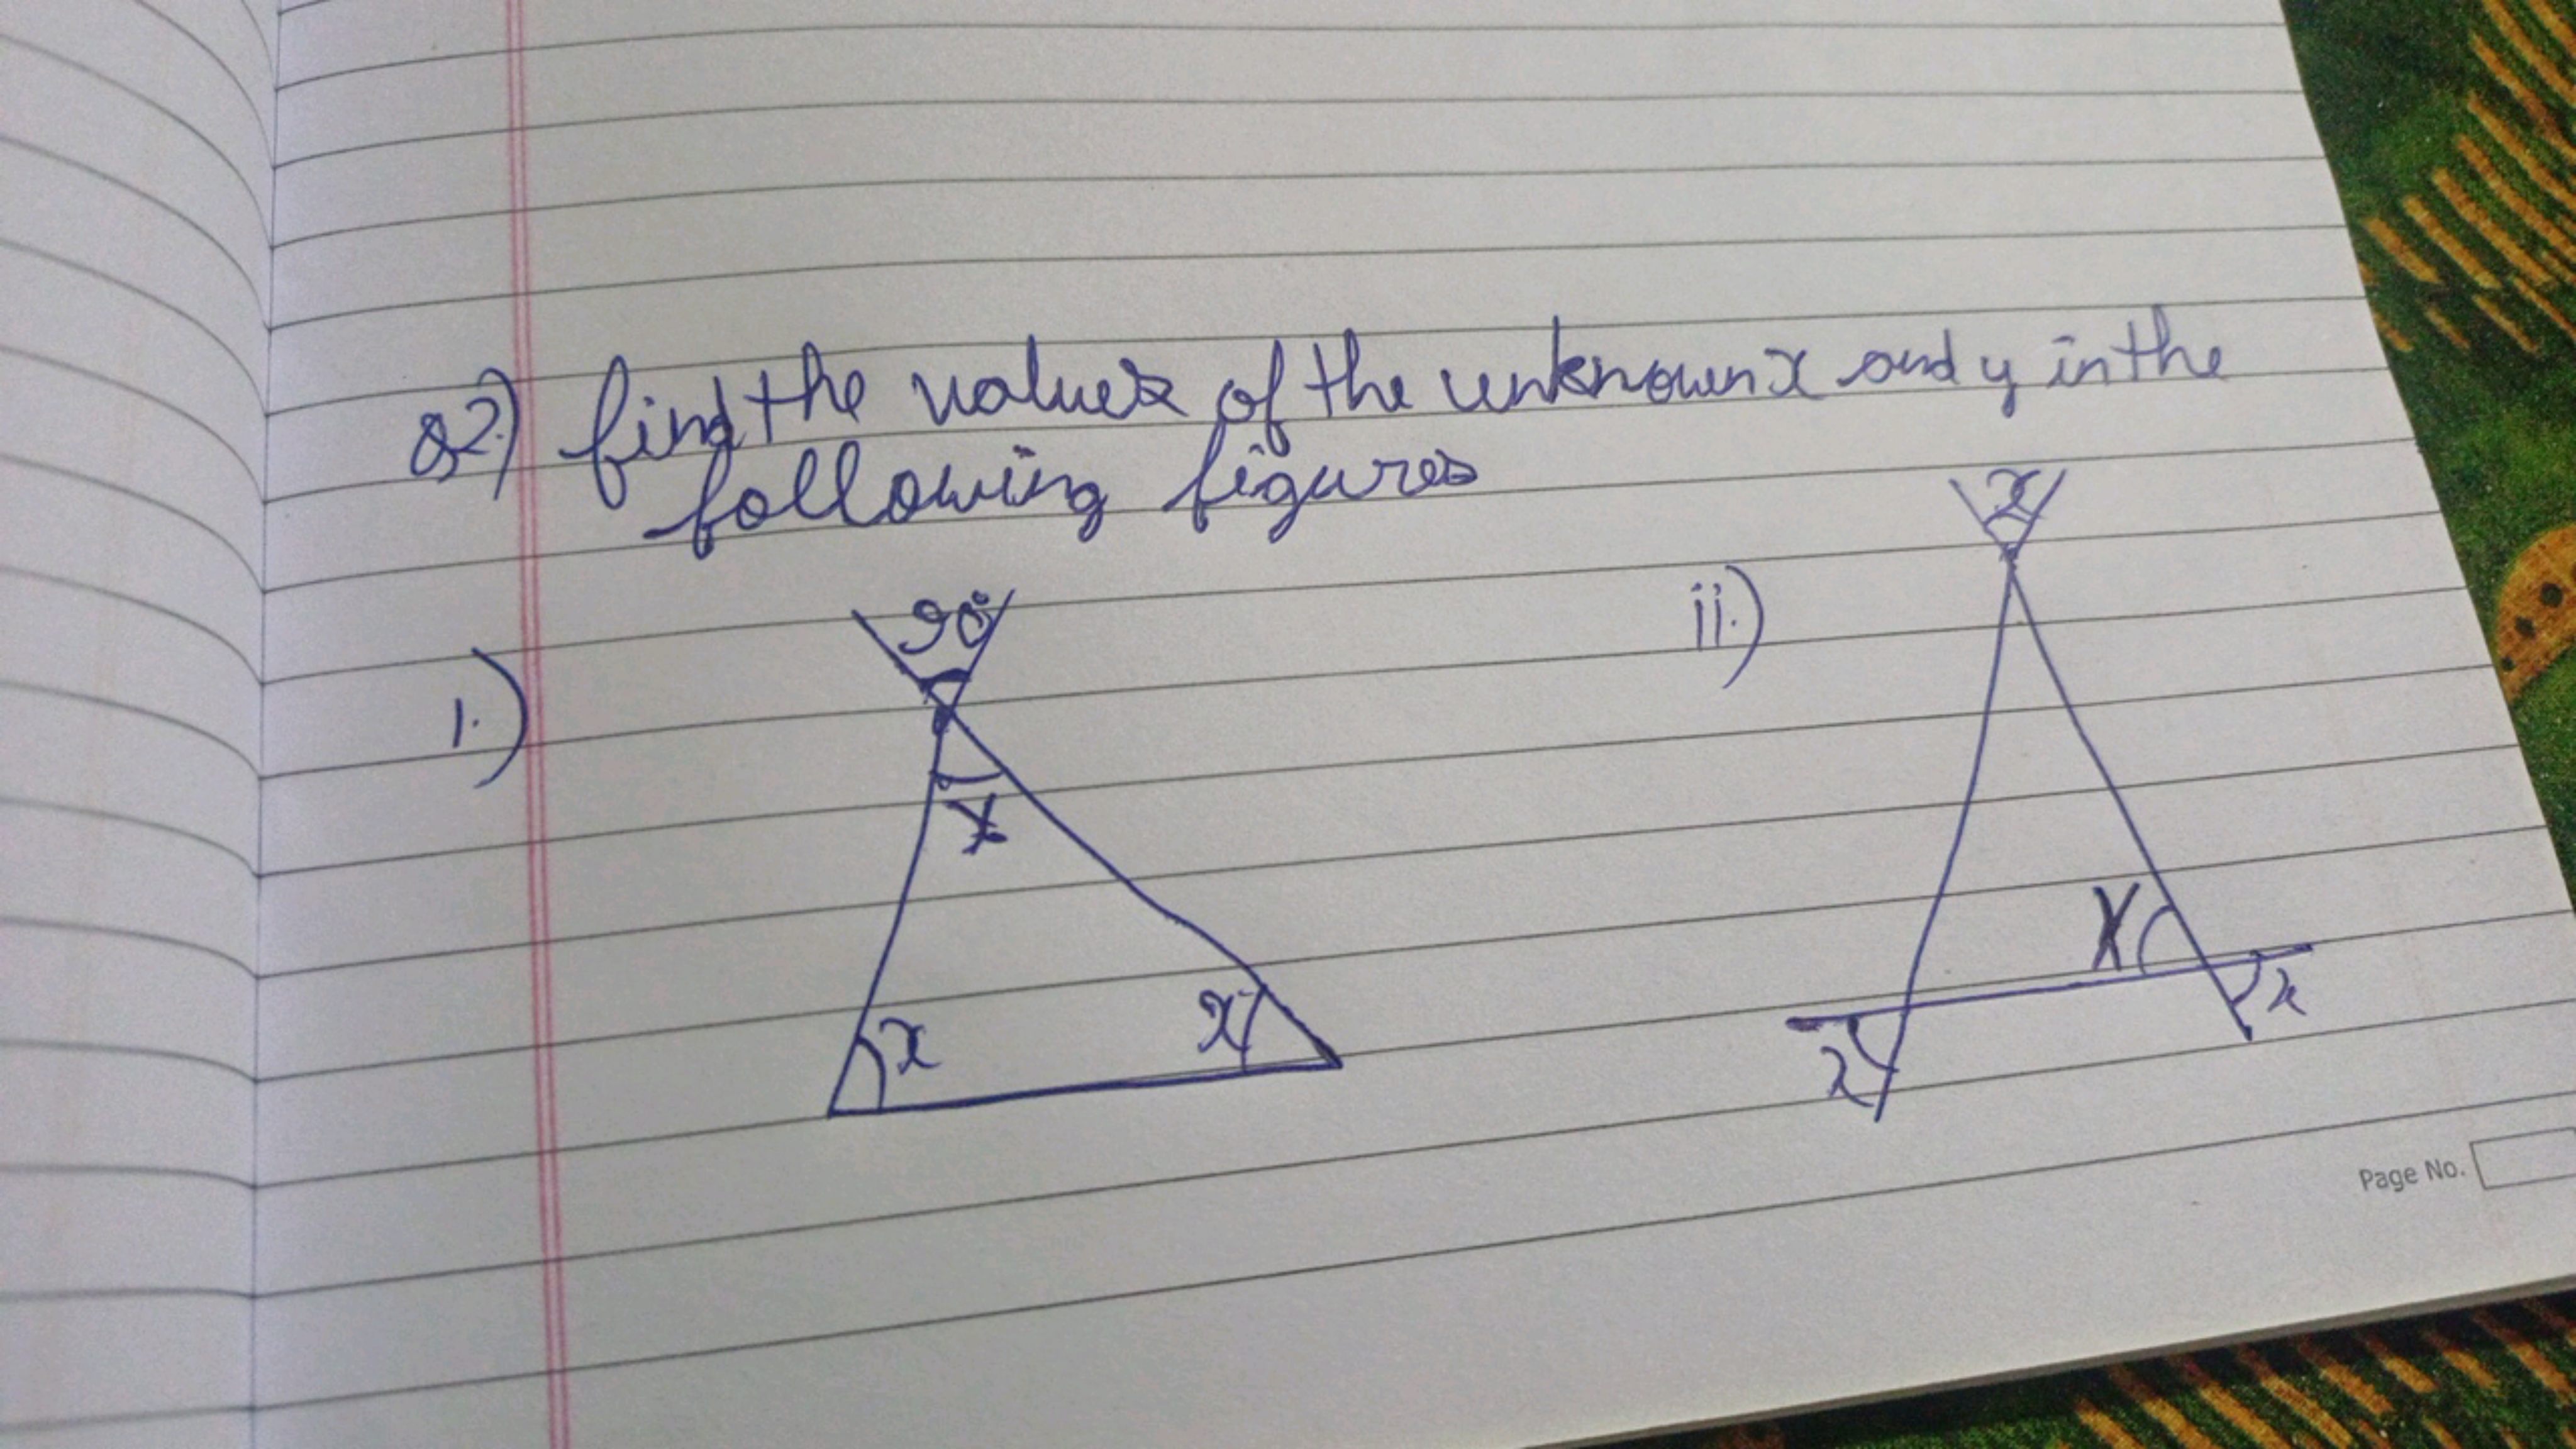 Q2) find the values of the unknown x and y in the
following figures
i.)
90°
y
x
x
ii.)
x
y
x
x
Page No.